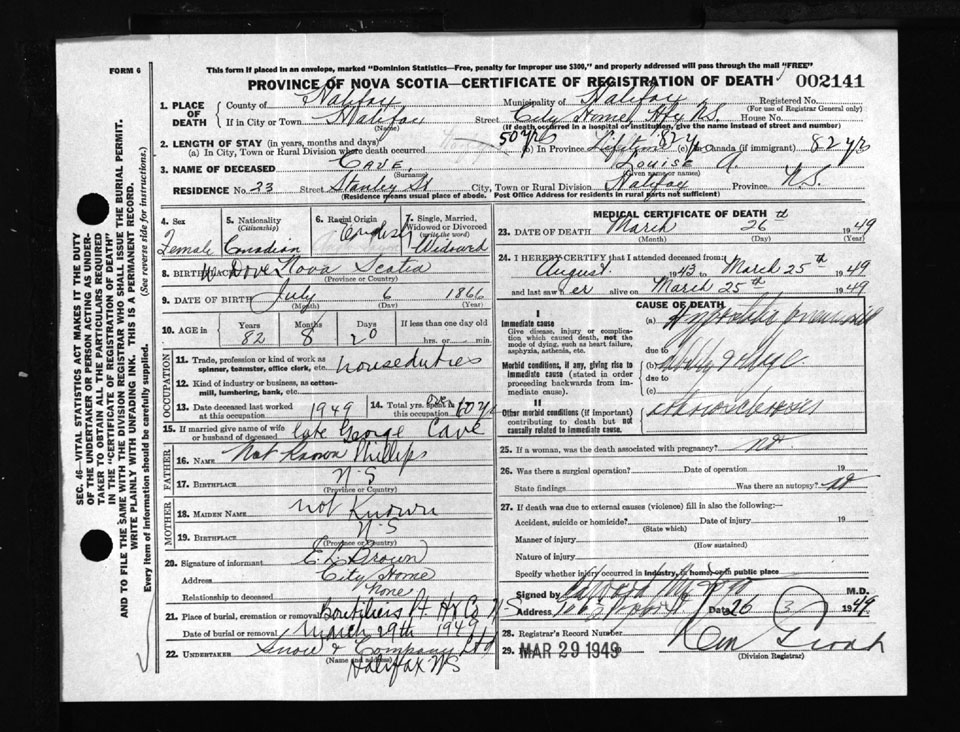 FORM 6
This form if placed in an envelope, marked "Dominion Statistics—Free, penalty for improper use $300," and properly addressed will pass through the mail "FREE"
PROVINCE OF NOVA SCOTIA—CERTIFICATE OF REGISTRATION OF DEATH 002141
1. PLACE OF DEATH
County of Halifax Municipality of Halifax Registered No.
(For use of Registrar General only)
If in City or Town Halifax Street City Home, Hfx N.S. House No.
(Name) (If death occurred in a hospital or institution, give name instead of street and number)
2. LENGTH OF STAY (in years, months and days)
(a) In City, Town or Rural Division where death occurred 50 yrs (b) In Province Lifetime 82 y (c) In Canada (if immigrant) 82 yrs
3. NAME OF DECEASED CAVE, Louise A
(Surname) (Given name or names)
RESIDENCE No. 23 Street Stanley St City, Town or Rural Division Halifax Province N.S.
(Residence means usual place of abode. Post Office Address for residents in rural parts not sufficient)
4. Sex
Female
5. Nationality
(Citizenship)
Canadian
6. Racial Origin
English
7. Single, Married, Widowed or Divorced
(write the word)
Widowed
8. BIRTHPLACE Nova Scotia
(Province or Country)
9. DATE OF BIRTH July 6 1866
(Month) (Day) (Year)
10. AGE in Years Months Days If less than one day old
82 8 20 hrs. or min.
OCCUPATION
11. Trade, profession or kind of work as spinner, teamster, office clerk, etc. houseduties
12. Kind of industry or business, as cotton-mill, lumbering, bank, etc.
13. Date deceased last worked at this occupation 1949
14. Total yrs. spent in this occupation 60 yrs
15. If married give name of wife or husband of deceased late George Cave
FATHER
16. NAME Not Known Phillips
17. BIRTHPLACE N-S
(Province or Country)
MOTHER
18. MAIDEN NAME not Known
19. BIRTHPLACE N-S
(Province or Country)
20. Signature of informant E.L. Brown
Address City Home
Relationship to deceased None
21. Place of burial, cremation or removal Boutiliers Pt Hx Co. N S
Date of burial or removal March 29th 1949
22. UNDERTAKER Snow & Company Ltd
(Name and address)
Halifax N S
MEDICAL CERTIFICATE OF DEATH
23. DATE OF DEATH March 26th 1949
(Month) (Day) (Year)
24. I HEREBY CERTIFY that I attended deceased from:
August 1943 to March 25th 1949
and last saw her alive on March 25th 1949
CAUSE OF DEATH
I
Immediate cause
Give disease, injury or complication which caused death, not the mode of dying, such as heart failure, asphyxia, asthenia, etc.
(a) Hypostatic pneumonia
due to
Morbid conditions, if any, giving rise to immediate cause (stated in order proceeding backwards from immediate cause).
(b)
due to
(c)
II
Other morbid conditions (if important) contributing to death but not causally related to immediate cause.
25. If a woman, was the death associated with pregnancy? no
26. Was there a surgical operation? Date of operation 19
State findings Was there an autopsy? no
27. If death was due to external causes (violence) fill in also the following:—
Accident, suicide or homicide? Date of injury 19
(State which)
Manner of injury
(How sustained)
Nature of injury
Specify whether injury occurred in industry, in home, or in public place
Signed by M.D.
Address Date 26 3 1949
28. Registrar's Record Number
29. MAR 29 1949
(Division Registrar)
SEC. 46—VITAL STATISTICS ACT MAKES IT THE DUTY OF THE UNDERTAKER OR PERSON ACTING AS UNDERTAKER TO OBTAIN ALL THE PARTICULARS REQUIRED IN THE "CERTIFICATE OF REGISTRATION OF DEATH" AND TO FILE THE SAME WITH THE DIVISION REGISTRAR WHO SHALL ISSUE THE BURIAL PERMIT.
WRITE PLAINLY WITH UNFADING INK. THIS IS A PERMANENT RECORD.
Every item of information should be carefully supplied. (See reverse side for instructions.)